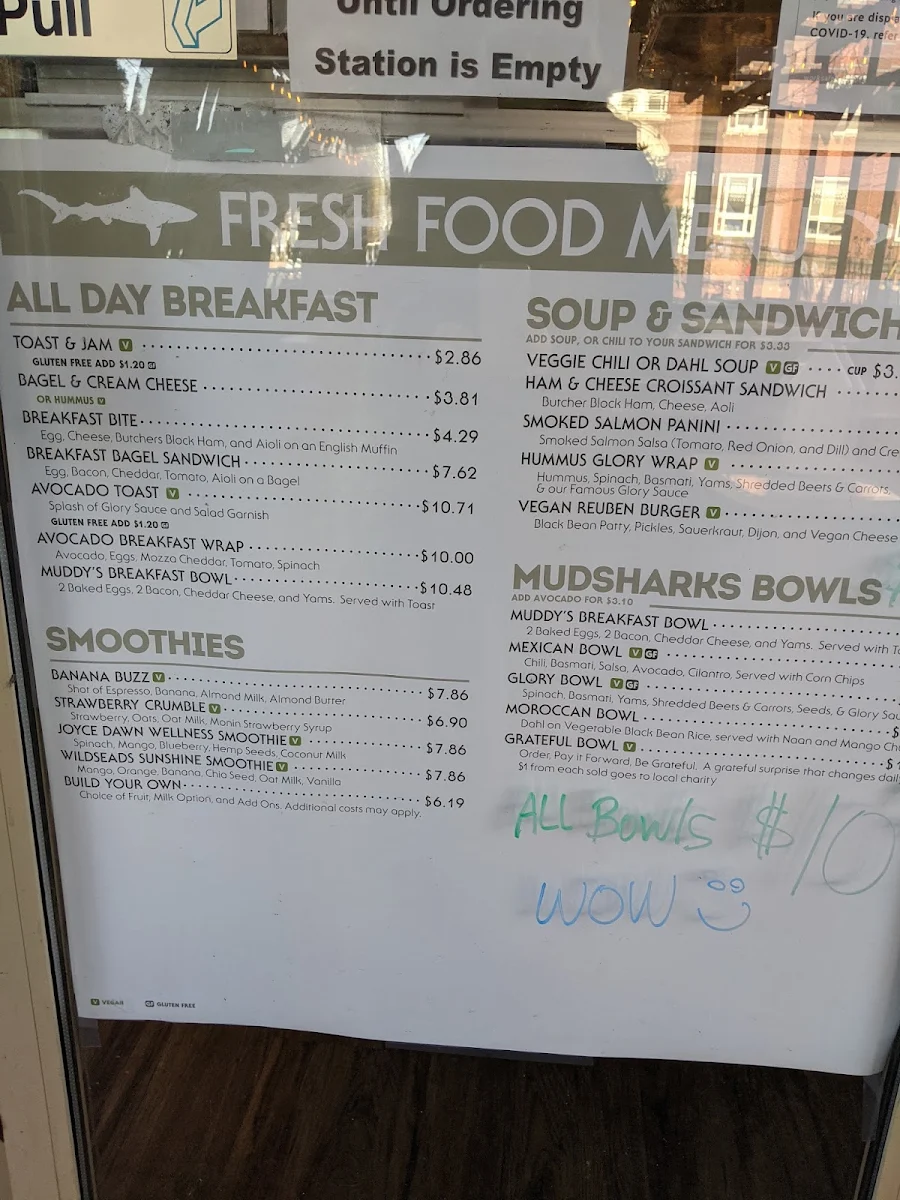 Pull
Until Ordering
Station is Empty
If you are
COVID-19, refer
FRESH FOOD MENU
ALL DAY BREAKFAST
TOAST & JAM V $2.86
GLUTEN FREE ADD $1.20 GF
BAGEL & CREAM CHEESE $3.81
OR HUMMUS V
BREAKFAST BITE $4.29
Egg, Cheese, Butchers Block Ham, and Aioli on an English Muffin
BREAKFAST BAGEL SANDWICH $7.62
Egg, Bacon, Cheddar, Tomato, Aioli on a Bagel
AVOCADO TOAST V $10.71
Splash of Glory Sauce and Salad Garnish
GLUTEN FREE ADD $1.20 GF
AVOCADO BREAKFAST WRAP $10.00
Avocado, Eggs, Mozza Cheddar, Tomato, Spinach
MUDDY'S BREAKFAST BOWL $10.48
2 Baked Eggs, 2 Bacon, Cheddar Cheese, and Yams. Served with Toast
SMOOTHIES
BANANA BUZZ V $7.86
Shot of Espresso, Banana, Almond Milk, Almond Butter
STRAWBERRY CRUMBLE V $6.90
Strawberry, Oats, Oat Milk, Monin Strawberry Syrup
JOYCE DAWN WELLNESS SMOOTHIE V $7.86
Spinach, Mango, Blueberry, Hemp Seeds, Coconut Milk
WILDSEADS SUNSHINE SMOOTHIE V $7.86
Mango, Orange, Banana, Chia Seed, Oat Milk, Vanilla
BUILD YOUR OWN $6.19
Choice of Fruit, Milk Option, and Add Ons. Additional costs may apply.
V VEGAN GF GLUTEN FREE
SOUP & SANDWICH
ADD SOUP, OR CHILI TO YOUR SANDWICH FOR $3.33
VEGGIE CHILI OR DAHL SOUP V GF CUP $3.
HAM & CHEESE CROISSANT SANDWICH
Butcher Block Ham, Cheese, Aoli
SMOKED SALMON PANINI
Smoked Salmon Salsa (Tomato, Red Onion, and Dill) and Cre
HUMMUS GLORY WRAP V
Hummus, Spinach, Basmati, Yams, Shredded Beets & Carrots,
& our Famous Glory Sauce
VEGAN REUBEN BURGER V
Black Bean Patty, Pickles, Sauerkraut, Dijon, and Vegan Cheese
MUDSHARKS BOWLS
ADD AVOCADO FOR $3.10
MUDDY'S BREAKFAST BOWL
2 Baked Eggs, 2 Bacon, Cheddar Cheese, and Yams. Served with T
MEXICAN BOWL V GF
Chili, Basmati, Salsa, Avocado, Cilantro, Served with Corn Chips
GLORY BOWL V GF
Spinach, Basmati, Yams, Shredded Beets & Carrots, Seeds, & Glory Sau
MOROCCAN BOWL $
Dahl on Vegetable Black Bean Rice, served with Naan and Mango Ch
GRATEFUL BOWL V $1
Order, Pay it Forward, Be Grateful. A grateful surprise that changes dail
$1 from each sold goes to local charity
ALL Bowls $10
WOW